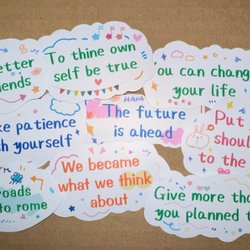 etter
iends
To thine own
self be true
ou can change
your life
e patience
th yourself
The future
is ahead
Put
to the
We became
what we think
about
oads
to rome
Give more tha
you planned t